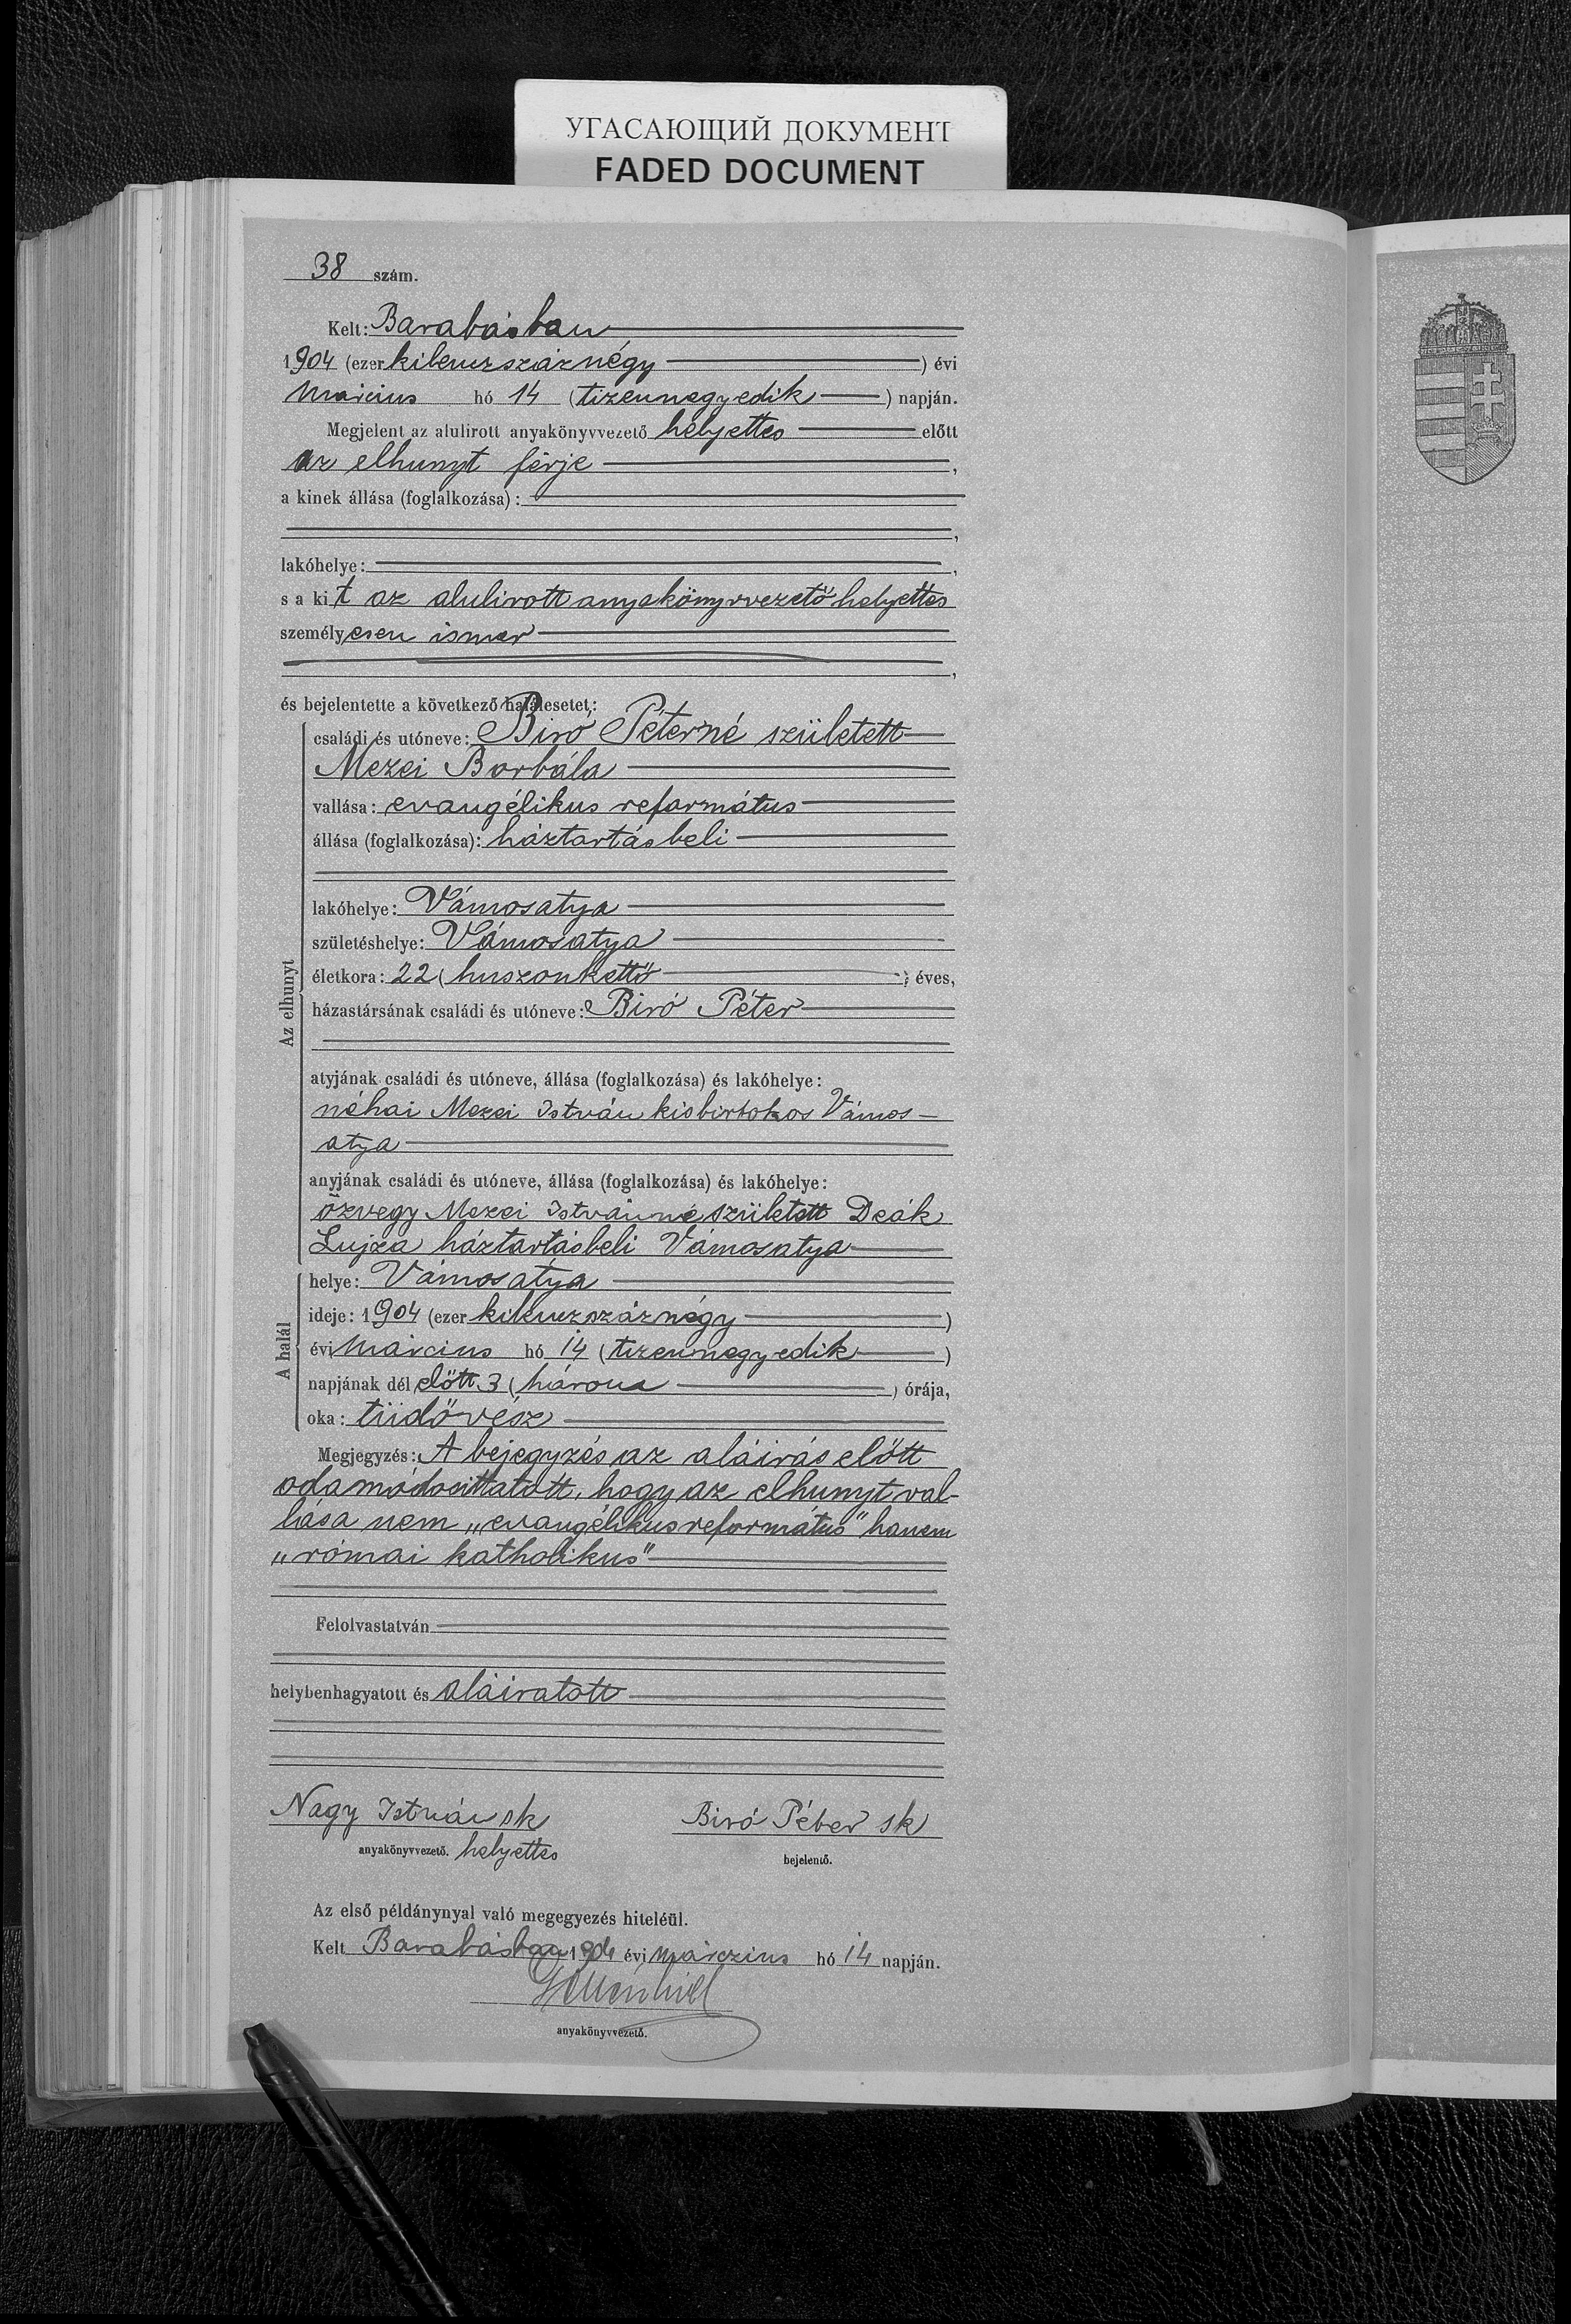 УГАСАЮЩИЙ ДОКУМЕНТ
FADED DOCUMENT
38 szám.
Kelt: Barabásban
1904 (ezer kilenczszáznégy ) évi
marcius hó 14 (tizennegyedik ) napján.
Megjelent az alulirott anyakönyvvezető helyettes előtt
az elhunyt férje ,
a kinek állása (foglalkozása):
,
lakóhelye: ,
s a kit az alulirott anyakönyvvezető helyettes
személyesen ismer
,
és bejelentette a következő halálesetet:
Az elhunyt
családi és utóneve: Biró Péterné született
Mezei Borbála
vallása: evangélikus református
állása (foglalkozása): háztartásbeli
lakóhelye: Vámosatya
születéshelye: Vámosatya
életkora: 22 (huszonkettő ) éves,
házastársának családi és utóneve: Biró Péter
atyjának családi és utóneve, állása (foglalkozása) és lakóhelye:
néhai Mezei István kisbirtokos Vámos-
atya
anyjának családi és utóneve, állása (foglalkozása) és lakóhelye:
özvegy Mezei Istvánné született Deák
Lujza háztartásbeli Vámosatya
A halál
helye: Vámosatya
ideje: 1904 (ezer kilenczszáznégy )
évi március hó 14 (tizennegyedik )
napjának dél előtt 3 (három ) órája,
oka: tüdővész
Megjegyzés: A bejegyzés az aláirás előtt
odamódosittatott, hogy az elhunyt val-
lása nem „evangélikus református" hanem
„római katholikus"
Felolvastatván
helybenhagyatott és aláiratott
Nagy István sk Biró Péter sk
anyakönyvvezető. helyettes bejelentő.
Az első példánynyal való megegyezés hiteléül.
Kelt Barabásban 1904 évi márczius hó 14 napján.
anyakönyvvezető.